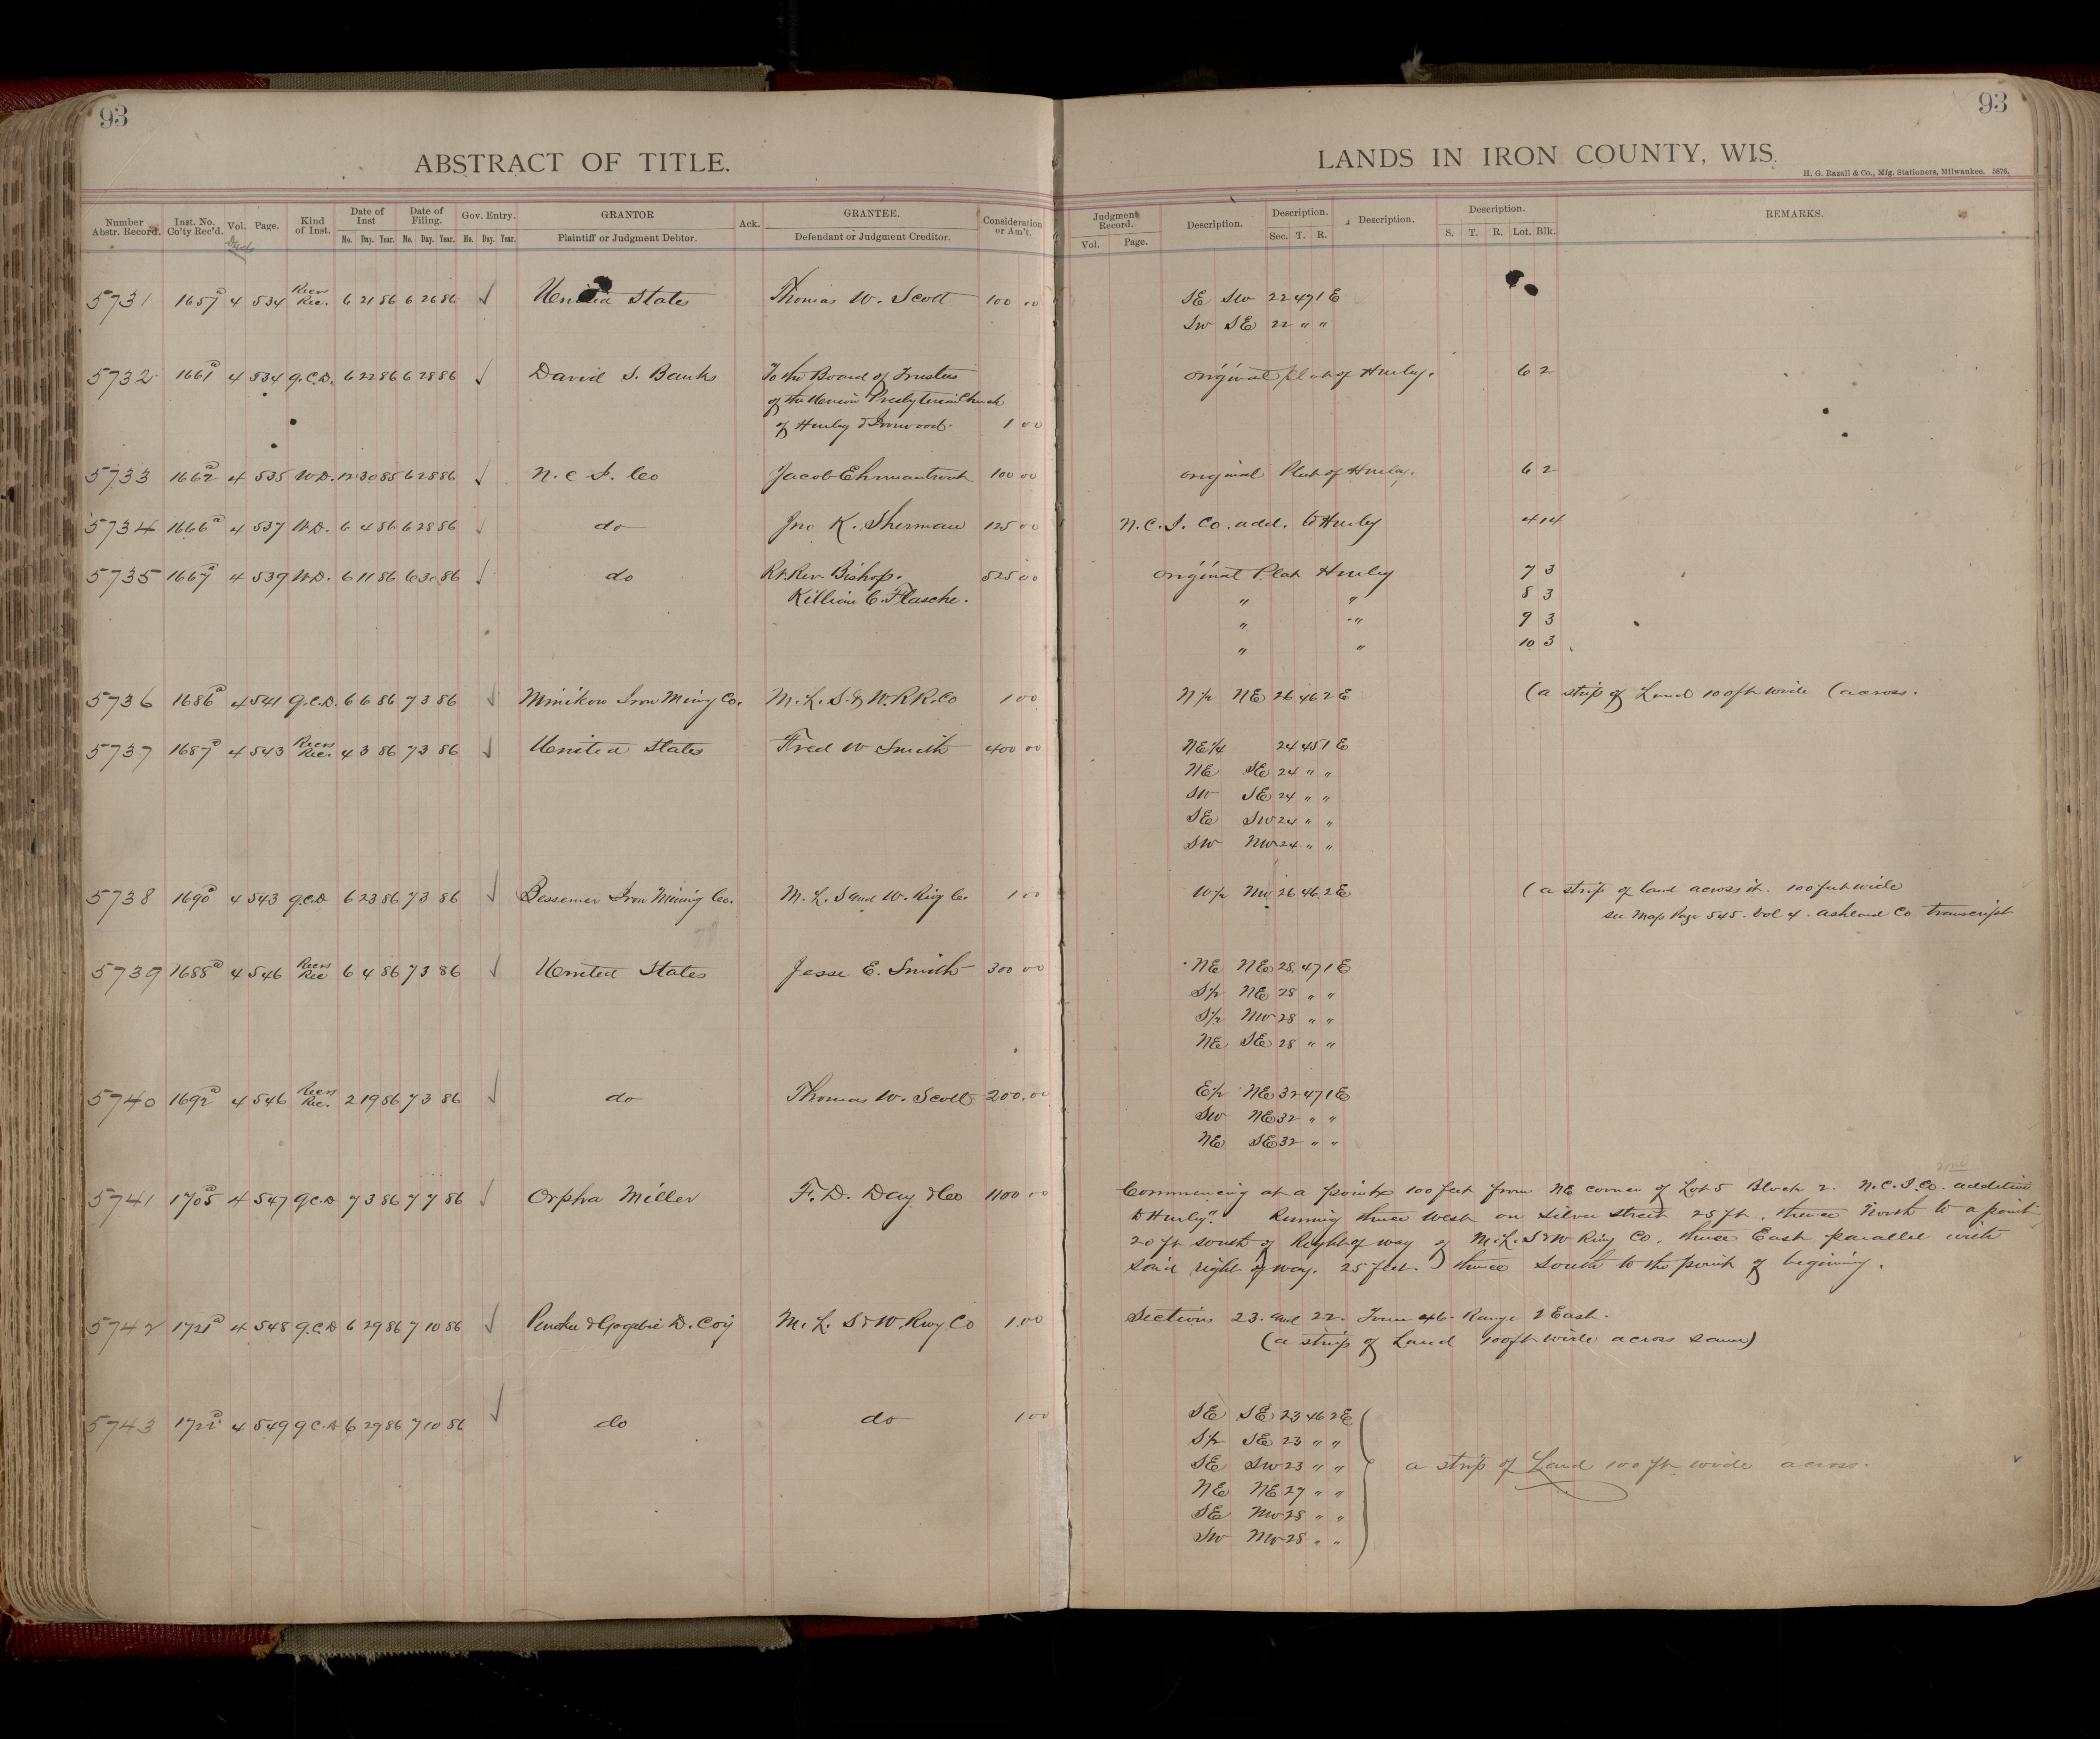 93
93
ABSTRACT OF TITLE.
LANDS IN IRON COUNTY, WIS.
H. G. Razall & Co., Mfg. Stationers, Milwaukee. 5876.
Number Abstr. Record. Inst. No. Co'ty Rec'd. Vol. Page. Kind of Inst. Date of Inst Mo. Day. Year. Date of Filing. Mo. Day. Year. Gov. Entry. Mo. Day. Year. GRANTOR Plaintiff or Judgment Debtor. Ack. GRANTEE. Defendant or Judgment Creditor. Consideration or Am't. Judgment Record. Vol. Page. Description. Description. Sec. T. R. Description. Description. S. T. R. Lot. Blk. REMARKS.
5731 1657 a 4 534 Rec. 6 21 86 6 26 86 ✓ United States Thomas W. Scott 100 00 SE SW 22 47 1 E
SW SE 22 " "
5732 1661 a 4 534 Q.C.D. 6 22 86 6 28 86 ✓ David S. Banks To the Board of Trustees original plat of Hurley. 6 2
of the Union Presbyterian Church
of Hurley & Ironwood. 1 00
5733 1662 a 4 535 W.D. 12 30 85 6 28 86 ✓ N. C. I. Co Jacob Ehrmantrout 100 00 original Plat of Hurley. 6 2
5734 1666 a 4 537 W.D. 6 4 86 6 28 86 ✓ do Jno K. Sherman 125 00 N. C. I. Co. add. to Hurley 4 14
5735 1667 a 4 539 W.D. 6 11 86 6 30 86 ✓ do Rt. Rev. Bishop. 525 00 original Plat Hurley 7 3
Killian C. Flasche. " " 8 3
" " 9 3
" " 10 3
5736 1686 a 4 541 Q.C.D. 6 6 86 7 3 86 ✓ Minikow Iron Mining Co. M. L. S. & W. RR. Co 1 00 N ½ NE 26 46 2 E (a strip of Land 100 ft wide (across.
5737 1687 a 4 543 Rec. 4 3 86 7 3 86 ✓ United States Fred W Smith 400 00 NE¼ 24 45 1 E
NE SE 24 " "
SW SE 24 " "
SE SW 24 " "
SW NW 24 " "
5738 1690 a 4 543 Q.C.D 6 23 86 7 3 86 ✓ Bessemer Iron Mining Co. M. L. S and W. Rwy Co. 1 00 W ½ NW 26 46 2 E (a strip of land across it. 100 feet wide
see Map Page 545. Vol 4. Ashland Co transcript
5739 1688 a 4 546 Rec 6 4 86 7 3 86 ✓ United States Jesse E. Smith 300 00 NE NE 28 47 1 E
S½ NE 28 " "
S½ NW 28 " "
NE SE 28 " "
5740 1692 a 4 546 Rec. 2 19 86 7 3 86 ✓ do Thomas W. Scott 200.00 E½ NE 32 47 1 E
SW NE 32 " "
NE SE 32 " "
5741 1705 a 4 547 Q.C.D 7 3 86 7 7 86 ✓ Orpha Miller F. D. Day & Co 1100 00 Commencing at a point 100 feet from NE corner of Lot 5 Block 2. N. C. I. Co. addition
to Hurley". Running thence West on Silver Street 25 ft. thence North to a point
20 ft south of Right of way of M. L. S & W Rwy Co. thence East parallel with
said right of way. 25 feet. thence South to the point of begining.
5742 1721 a 4 548 Q.C.D 6 29 86 7 10 86 ✓ D. Coy M. L. S & W. Rwy Co 1.00 Sections 23. and 22. Town 46. Range 2 East.
(a strip of Land 100 ft wide across same)
5743 1722 a 4 549 Q.C.D 6 29 86 7 10 86 ✓ do do 1 00 SE SE 23 46 2 E
S½ SE 23 " "
SE SW 23 " " a strip of Land 100 ft wide across.
NE NE 27 " "
SE NW 28 " "
SW NW 28 " "